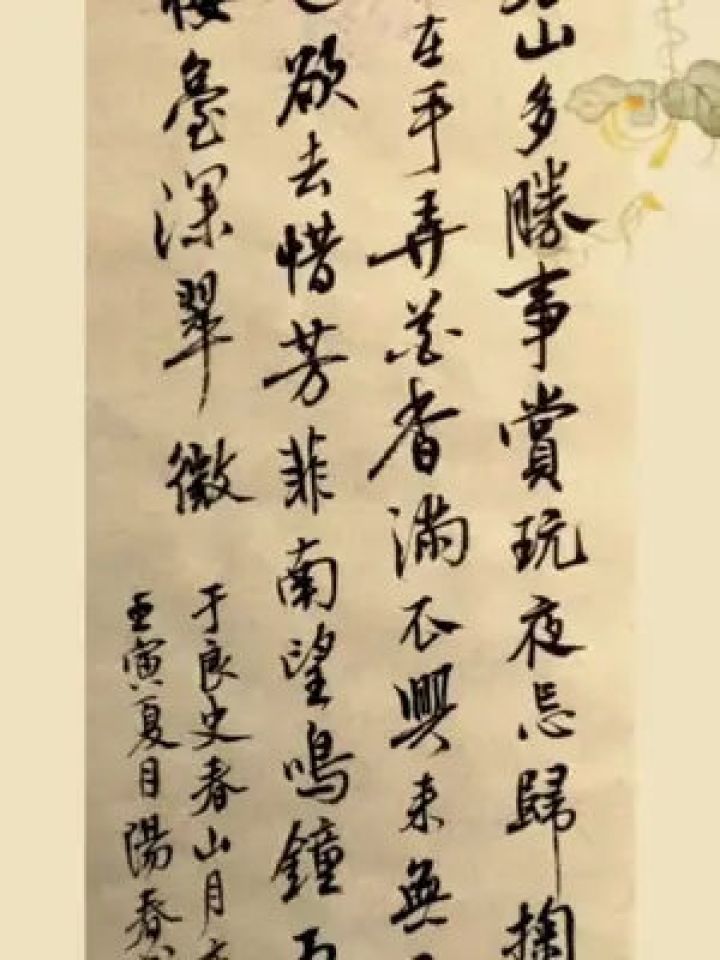 山多勝事賞玩夜忘歸掬
在手弄花香滿衣興來無
欲去惜芳菲南望鳴鐘
樓臺深翠微
于良史春山月
壬寅夏日陽春